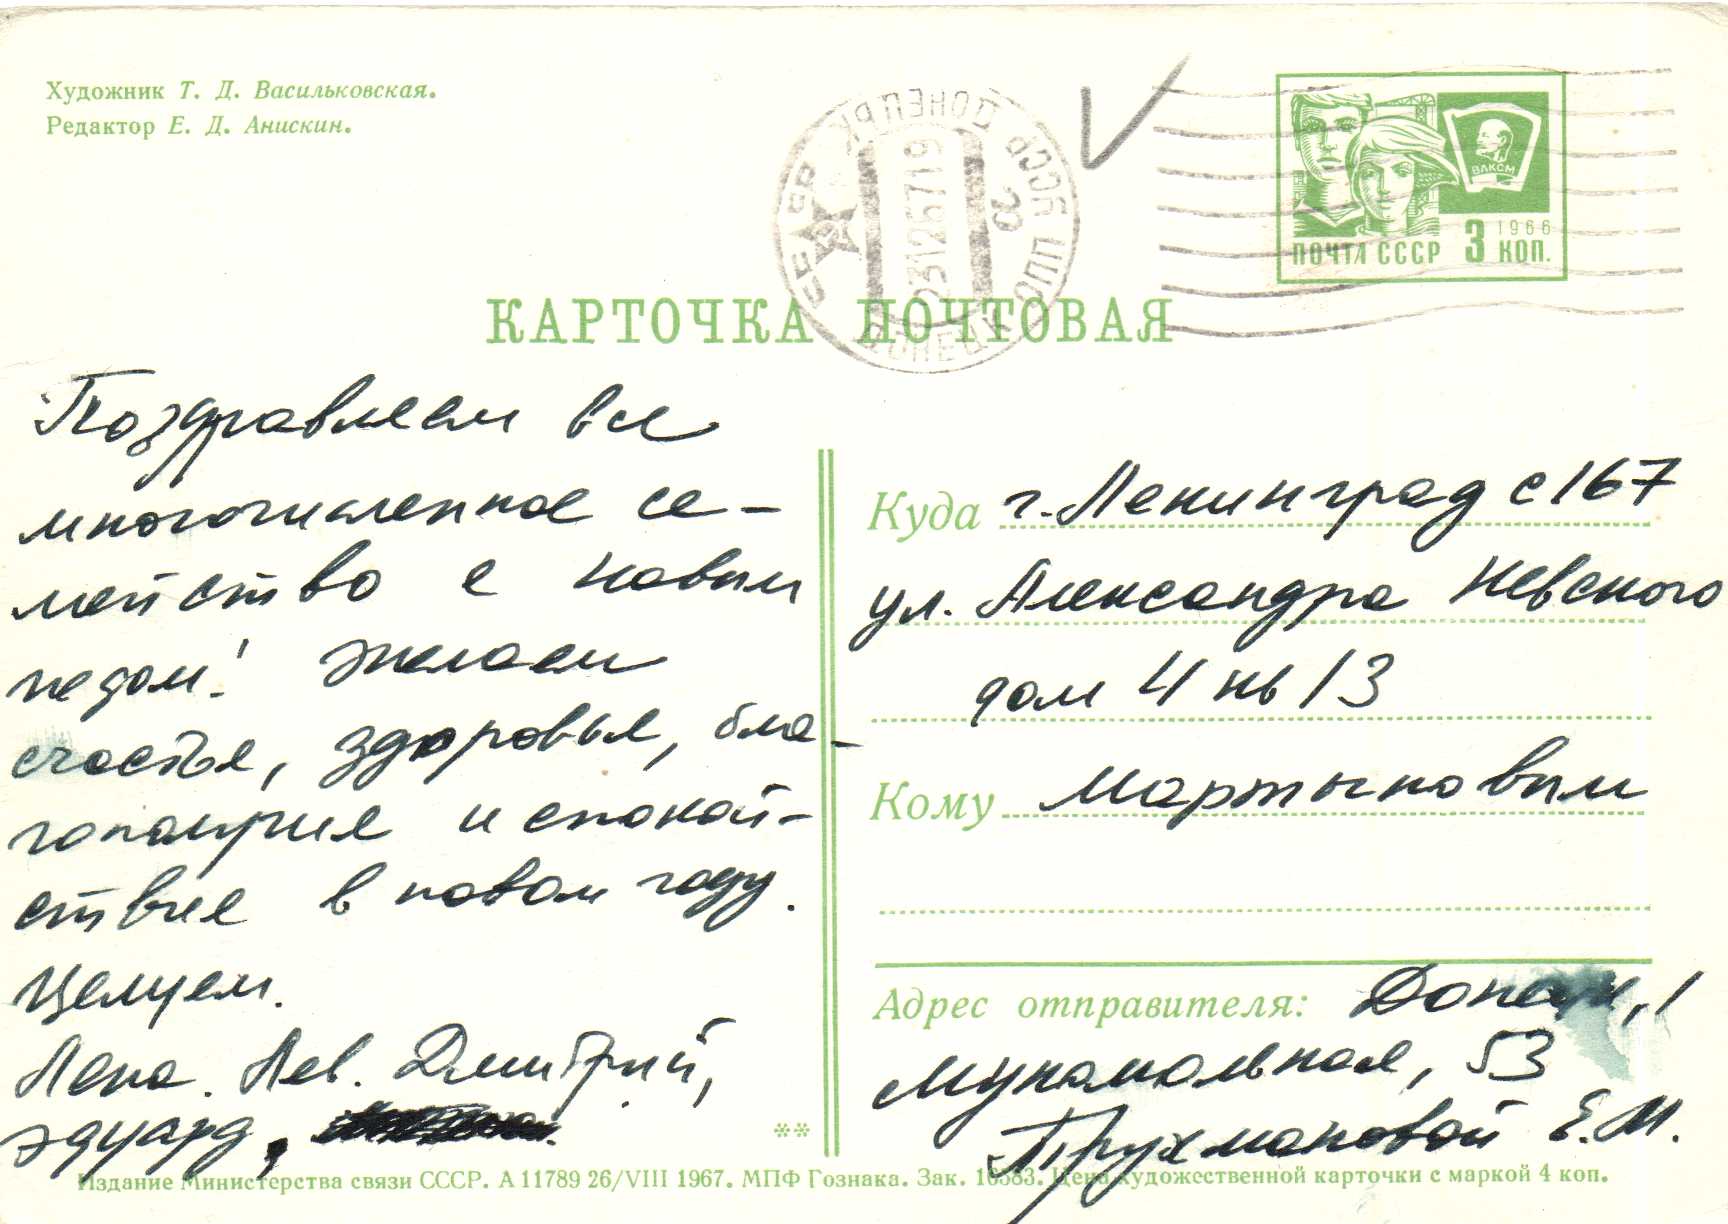 Художник Т. Д. Васильковская.
Редактор Е. Д. Анискин.
ДОНЕЦЬК УССР ЦПП ДОНЕЦК
23126719
ВЛКСМ
1966
ПОЧТА СССР 3 КОП.
КАРТОЧКА ПОЧТОВАЯ
Поздравляем все
многочисленное се-
мейство с новым
годом! Желаем
счастья, здоровья, бла-
гополучия и спокой-
ствия в новом году.
Целуем.
Лена. Лев. Дмитрий,
Эдуард,
Куда г. Ленинград с 167
ул. Александра Невского
дом 4 кв 13
Кому Мартыновым
Адрес отправителя:
Мукомольная, 53
Трухмановой Е. М.
**
Издание Министерства связи СССР. А 11789 26/VIII 1967. МПФ Гознака. Зак. 16383. Цена художественной карточки с маркой 4 коп.